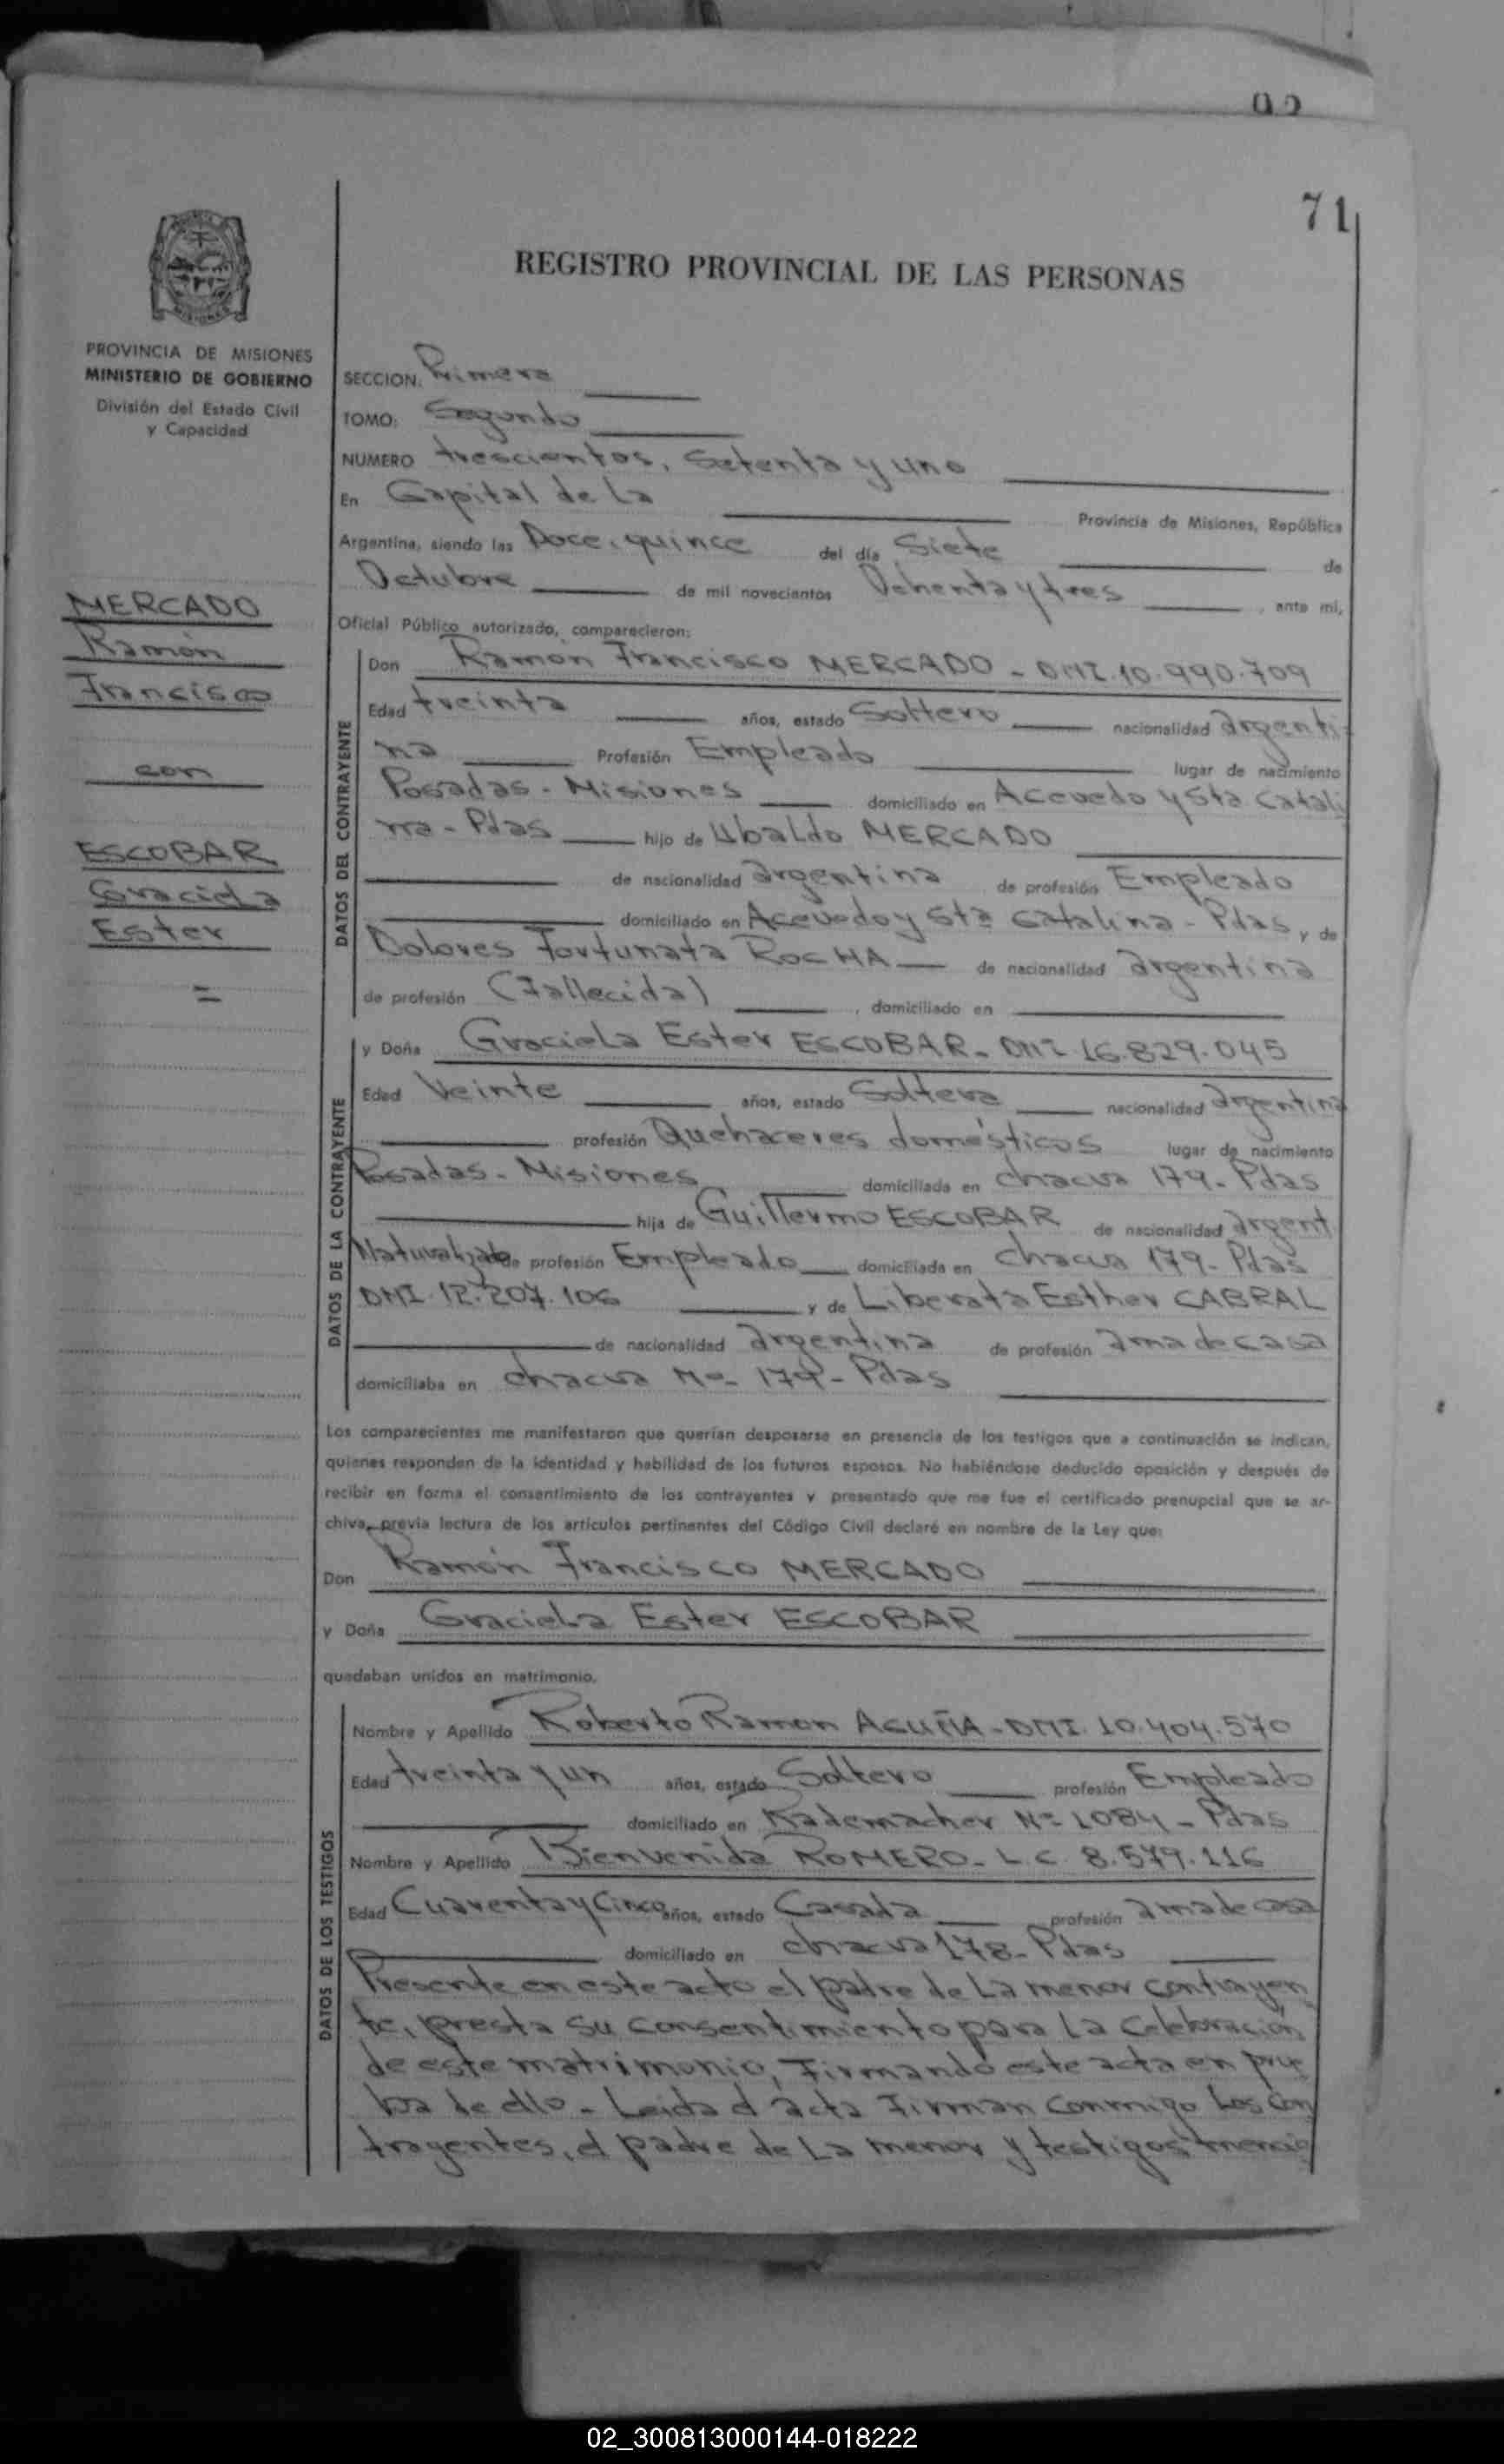 71
REGISTRO PROVINCIAL DE LAS PERSONAS
PROVINCIA DE MISIONES
MINISTERIO DE GOBIERNO
División del Estado Civil
y Capacidad
MERCADO
Ramón
Francisco
con
ESCOBAR
Graciela
Ester
=
SECCION: Primera
TOMO: Segundo
NUMERO trescientos, Setenta y uno
En Capital de La Provincia de Misiones, República
Argentina, siendo las Doce, quince del día Siete de
Octubre de mil novecientos Ochenta y tres, ante mí,
Oficial Público autorizado, comparecieron:
DATOS DEL CONTRAYENTE
Don Ramón Francisco MERCADO - DNI. 10.990.709
Edad treinta años, estado Soltero nacionalidad argenti-
na Profesión Empleado lugar de nacimiento
Posadas - Misiones domiciliado en Acevedo y Sta Catali
na - Pdas hijo de Ubaldo MERCADO
de nacionalidad argentina de profesión Empleado
domiciliado en Acevedo y Sta Catalina - Pdas, y de
Dolores Fortunata ROCHA de nacionalidad argentina
de profesión (Fallecida), domiciliado en
DATOS DE LA CONTRAYENTE
y Doña Graciela Ester ESCOBAR - DNI 16.829.045
Edad Veinte años, estado Soltera nacionalidad argentina
profesión Quehaceres domésticos lugar de nacimiento
Posadas - Misiones domiciliada en chacra 179 - Pdas
hija de Guillermo ESCOBAR de nacionalidad argent
Naturalizado de profesión Empleado domiciliada en chacra 179 - Pdas
DNI. 12.207.106 y de Liberata Esther CABRAL
de nacionalidad argentina de profesión ama de casa
domiciliaba en chacra Nº 179 - Pdas
Los comparecientes me manifestaron que querían desposarse en presencia de los testigos que a continuación se indican,
quienes responden de la identidad y habilidad de los futuros esposos. No habiéndose deducido oposición y después de
recibir en forma el consentimiento de los contrayentes y presentado que me fue el certificado prenupcial que se ar-
chiva, previa lectura de los artículos pertinentes del Código Civil declaré en nombre de la Ley que:
Don Ramón Francisco MERCADO
y Doña Graciela Ester ESCOBAR
quedaban unidos en matrimonio.
DATOS DE LOS TESTIGOS
Nombre y Apellido Roberto Ramon ACUÑA - DNI. 10.404.570
Edad treinta y un años, estado Soltero profesión Empleado
domiciliado en Rademacher Nº 1084 - Pdas
Nombre y Apellido Bienvenida ROMERO - L.C. 8.549.116
Edad Cuarenta y Cinco años, estado Casada profesión ama de casa
domiciliado en chacra 178 - Pdas
Presente en este acto el padre de La menor contrayen
te, presta su consentimiento para La Celebración
de este matrimonio, Firmando este acta en prue
ba de ello - Leida el acta Firman conmigo Los Con
trayentes, el padre de La menor y testigos mencio
02_300813000144-018222